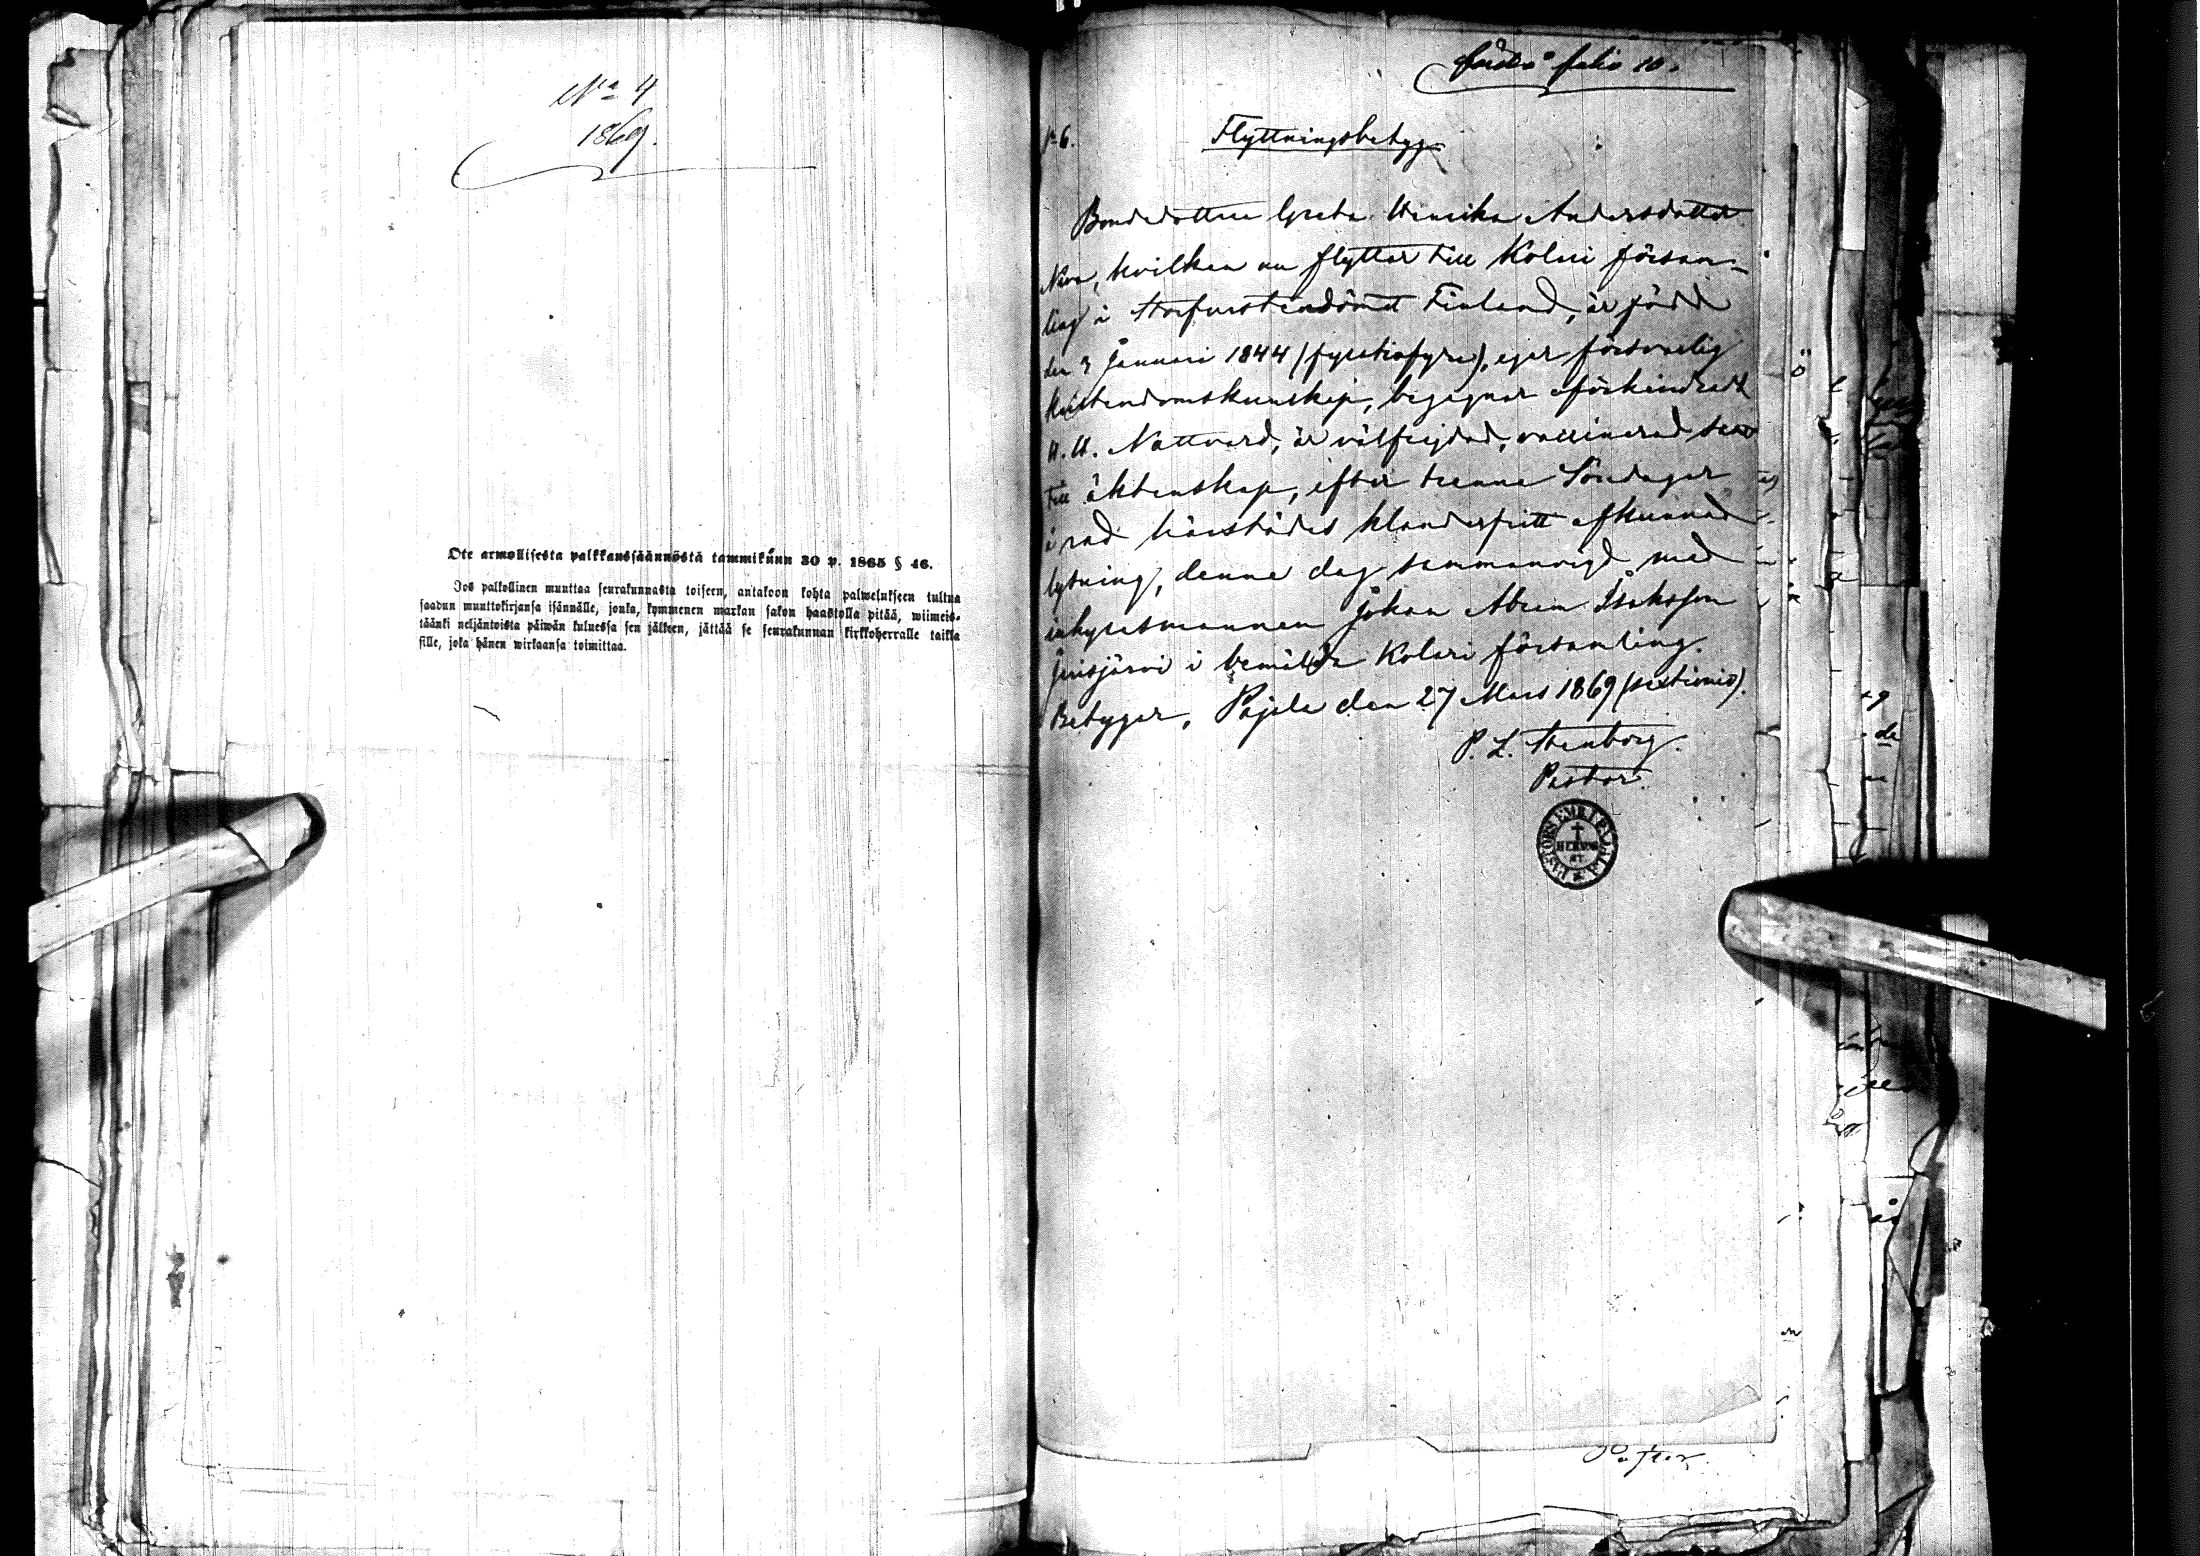 No 4
1869.
Ote armollisesta palkkaussäännöstä tammikuun 30 p. 1865 § 46.
Jos palkollinen muuttaa seurakunnasta toiseen, antakoon kohta palwelukseen tultua
saadun muuttokirjansa isännälle, jonka, kymmenen markan sakon haastolla pitää, wiimeis-
täänki neljäntoista päiwän kuluessa sen jälkeen, jättää se seurakunnan kirkkoherralle taikka
sille, joka hänen wirkaansa toimittaa.
folio 10.
N:o 6.
Flyttningsbetyg
Bondedottren Greta Henrika Andersdotter
Niva, hvilken nu flyttar till Kolari försam-
ling i Storfurstendömet Finland, är född
den 3 Januari 1844 (fyratiofyra), eger försvarlig
kristendomskunskap, begagnar oförhindradt
H.H. Nattvard, är välfrejdad, vaccinerad samt
till äktenskap, efter trenne Söndagar
i rad härstädes klanderfritt afkunnad
lysning, denne dag sammanvigd med
inhysesmannen Johan Abram Isaksson
Jerisjärvi i bemälda Kolari församling.
Betygar, Pajala den 27 Mars 1869 (sextionio).
P. L. Stenborg.
Pastor.
Pastor